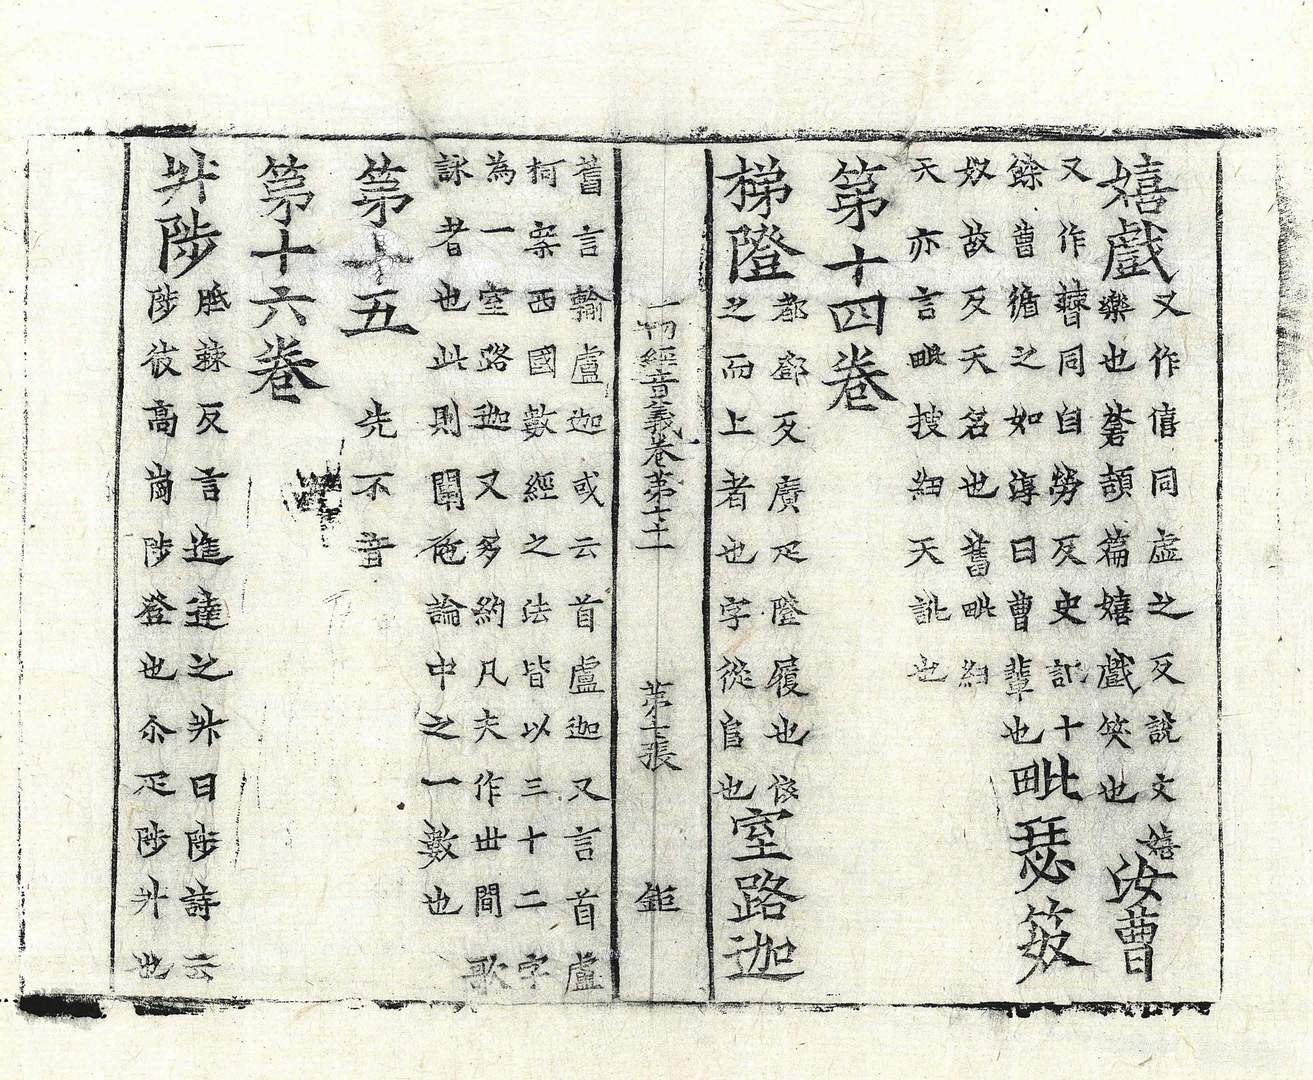 嬉戲
又作僖同虛之反說文嬉
樂也蒼頡篇嬉戲笑也
汝曹
又作𣍘同自勞反史記十
餘曹循之如淳曰曹輩也
毗瑟笯
奴故反天名也舊毗紐
天亦言毗搜紐天訛也
第十四卷
梯隥
都鄧反廣疋隥履也依
之而上者也字從𨸏也
室路迦
一切經音義卷第七十一 第七張 鉅
舊言輸盧迦或云首盧迦又言首盧
柯案西國數經之法皆以三十二字
為一室路迦又多約凡夫作世間歌
詠者也此則闡陁論中之一數也
第十五 先不音
第十六卷
升陟
胝棘反言進達之升曰陟詩云
陟彼高崗陟登也尒疋陟升也